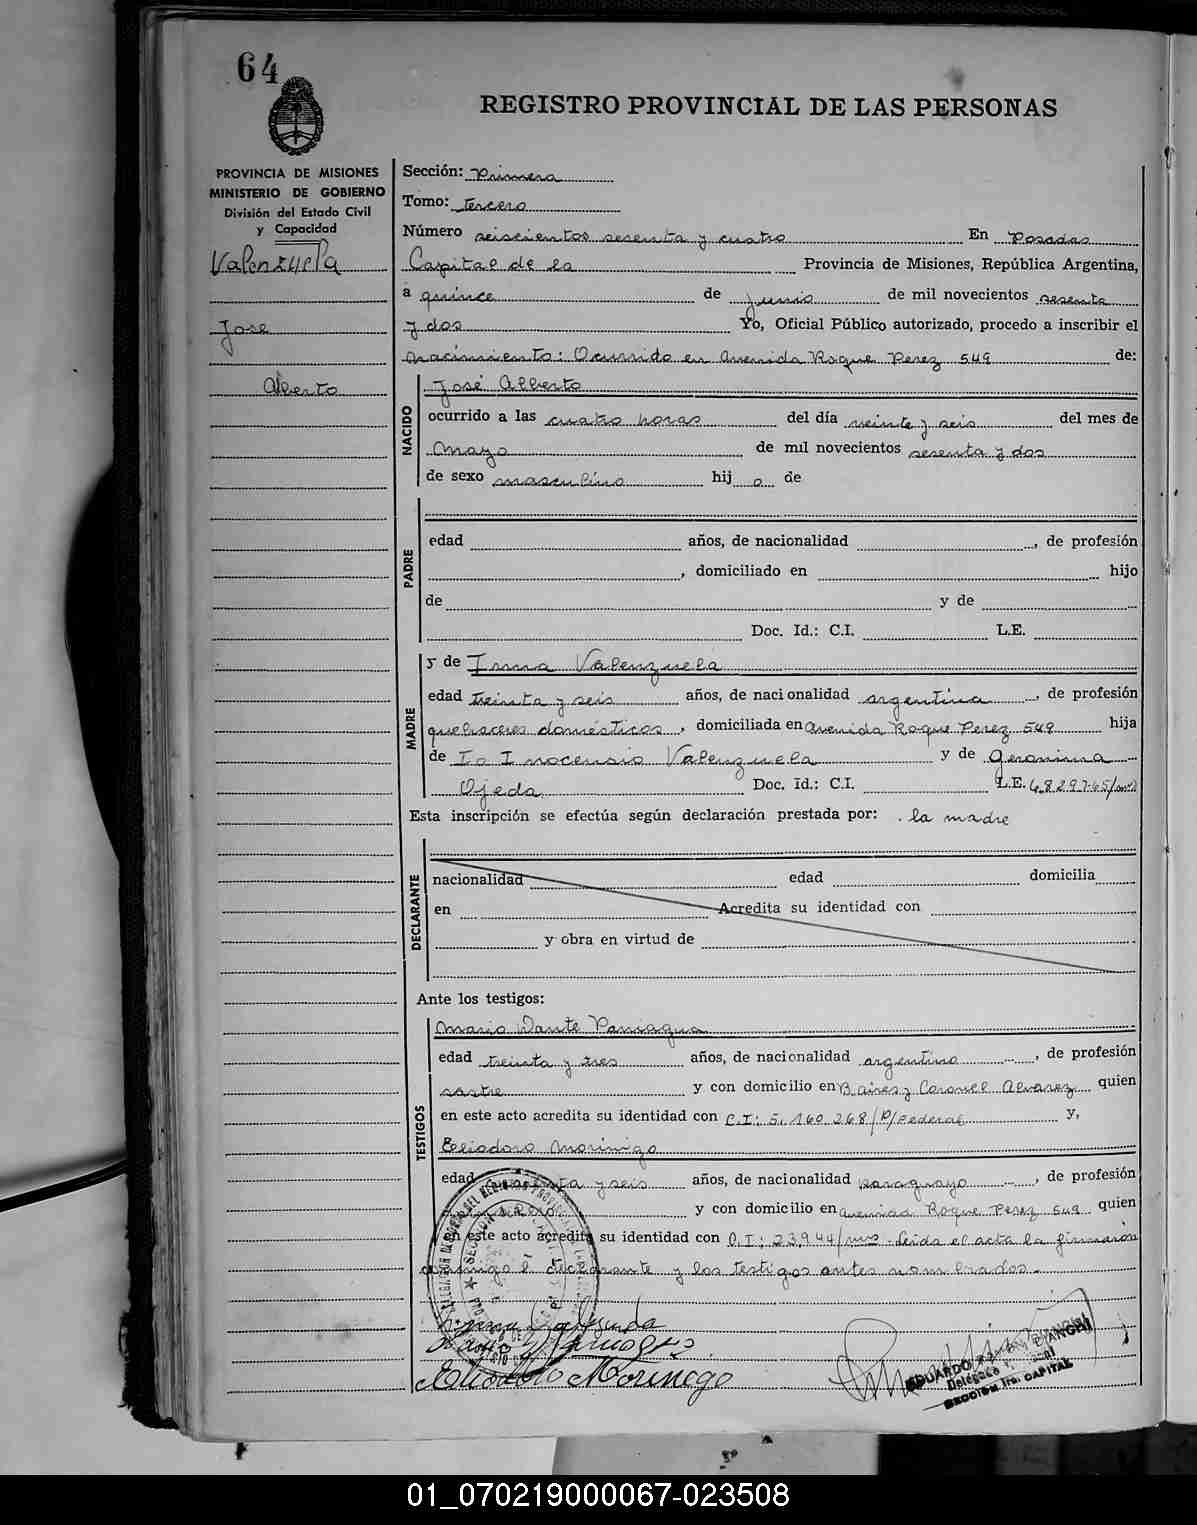 64
REGISTRO PROVINCIAL DE LAS PERSONAS
PROVINCIA DE MISIONES
MINISTERIO DE GOBIERNO
División del Estado Civil
y Capacidad
Valenzuela
Jose
Alberto
Sección: Primera
Tomo: tercero
Número seiscientos sesenta y cuatro En Posadas
Capital de la Provincia de Misiones, República Argentina,
a quince de junio de mil novecientos sesenta
y dos Yo, Oficial Público autorizado, procedo a inscribir el
nacimiento: Ocurrido en Avenida Roque Perez 549 de:
NACIDO
José Alberto
ocurrido a las cuatro horas del día veinte y seis del mes de
Mayo de mil novecientos sesenta y dos
de sexo masculino hij o de
PADRE
edad años, de nacionalidad , de profesión
, domiciliado en hijo
de y de
Doc. Id.: C.I. L.E.
MADRE
y de Irma Valenzuela
edad treinta y seis años, de nacionalidad argentina , de profesión
quehaceres domésticos , domiciliada en Avenida Roque Perez 549 hija
de Inocensio Valenzuela y de Geronima
Ojeda Doc. Id.: C.I. L.E.
Esta inscripción se efectúa según declaración prestada por: la madre
DECLARANTE
nacionalidad edad domicilia
en Acredita su identidad con
y obra en virtud de
Ante los testigos:
TESTIGOS
Mario Dante Paniagua
edad treinta y tres años, de nacionalidad argentino , de profesión
sastre y con domicilio en B. aires y Coronel Alvarez quien
en este acto acredita su identidad con C.I: 5.160.268/P/Federal y,
Eliodoro Morinigo
edad y seis años, de nacionalidad paraguayo , de profesión
y con domicilio en Avenida Roque Perez 549 quien
en este acto acredita su identidad con C.I: 23.944/mnes - Leida el acta la firmaron
conmigo el declarante y los testigos antes nombrados.-
Eliodoro Morinigo
EDUARDO BIANCHI
Delegado
SECCION 1ra. CAPITAL
01_070219000067-023508